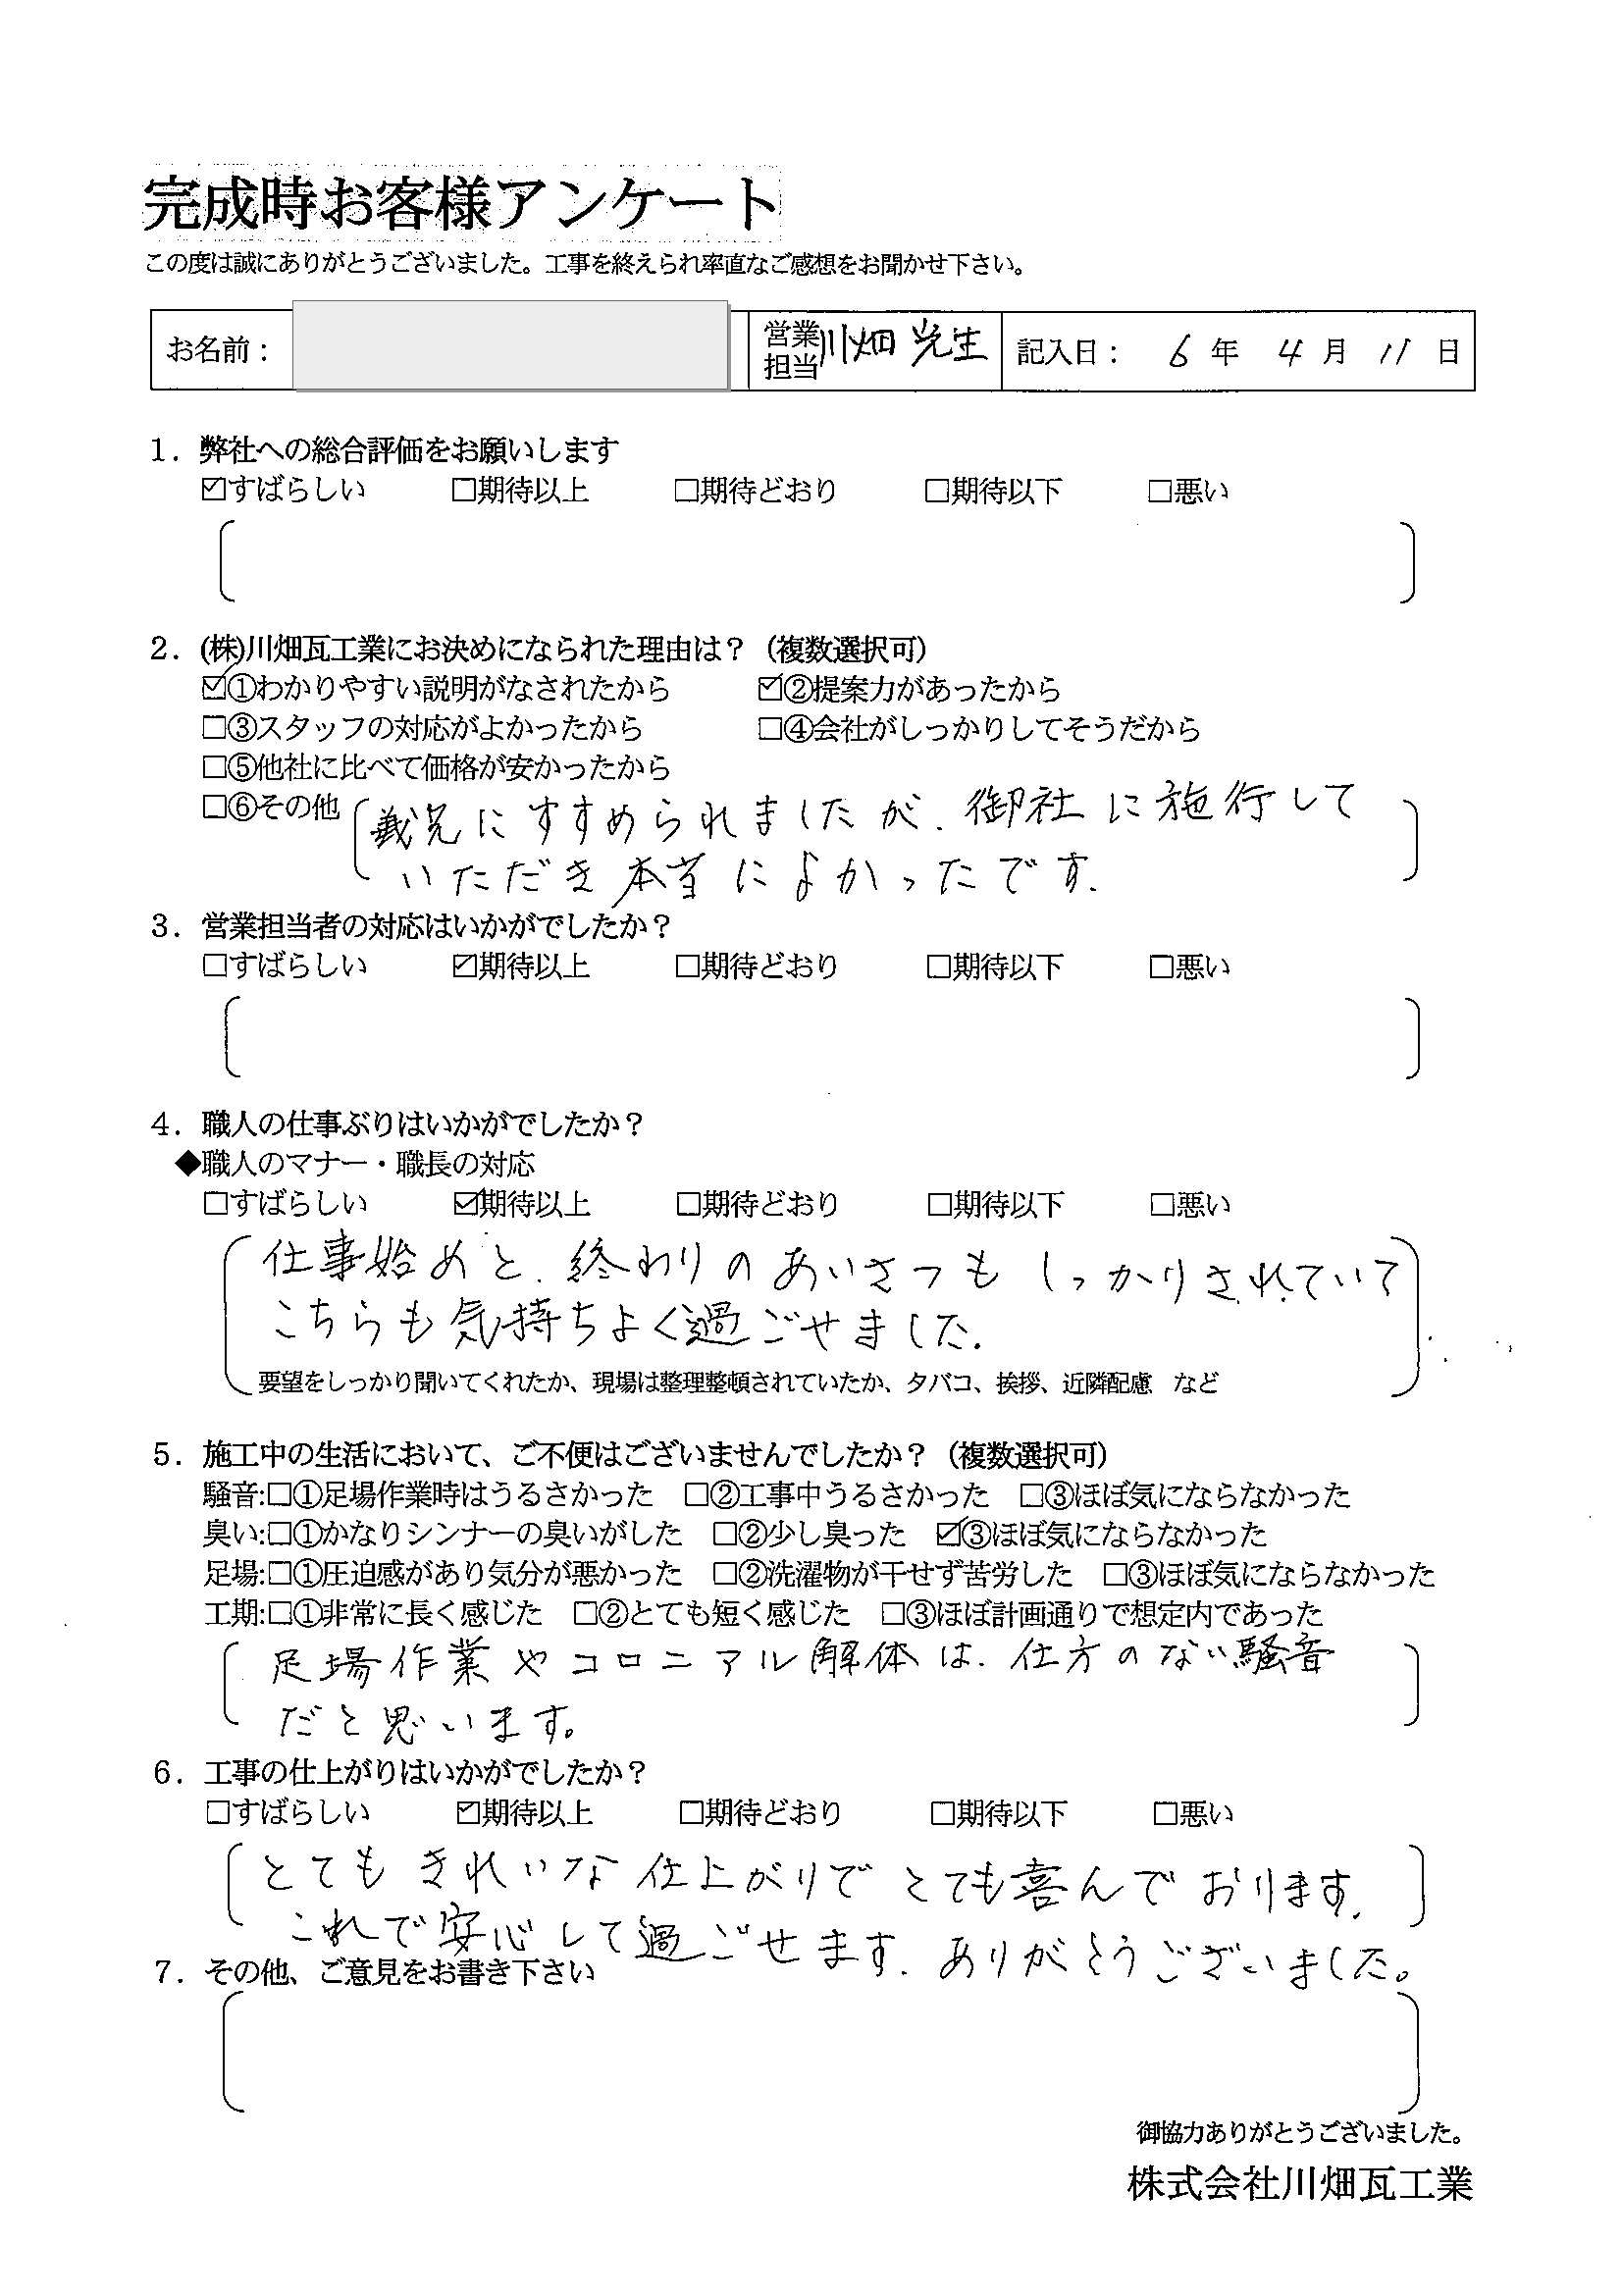 完成時お客様アンケート
この度は誠にありがとうございました。工事を終えられ率直なご感想をお聞かせ下さい。
お名前： 営業担当 川畑 光生 記入日： 6 年 4 月 11 日
1．弊社への総合評価をお願いします
☑すばらしい □期待以上 □期待どおり □期待以下 □悪い
2．(株)川畑瓦工業にお決めになられた理由は？（複数選択可）
☑①わかりやすい説明がなされたから ☑②提案力があったから
□③スタッフの対応がよかったから □④会社がしっかりしてそうだから
□⑤他社に比べて価格が安かったから
□⑥その他 義兄にすすめられましたが、御社に施行して
いただき本当によかったです.
3．営業担当者の対応はいかがでしたか？
□すばらしい ☑期待以上 □期待どおり □期待以下 □悪い
4．職人の仕事ぶりはいかがでしたか？
◆職人のマナー・職長の対応
□すばらしい ☑期待以上 □期待どおり □期待以下 □悪い
仕事始めと、終わりのあいさつもしっかりされていて
こちらも気持ちよく過ごせました.
要望をしっかり聞いてくれたか、現場は整理整頓されていたか、タバコ、挨拶、近隣配慮 など
5．施工中の生活において、ご不便はございませんでしたか？（複数選択可）
騒音:□①足場作業時はうるさかった □②工事中うるさかった □③ほぼ気にならなかった
臭い:□①かなりシンナーの臭いがした □②少し臭った ☑③ほぼ気にならなかった
足場:□①圧迫感があり気分が悪かった □②洗濯物が干せず苦労した □③ほぼ気にならなかった
工期:□①非常に長く感じた □②とても短く感じた □③ほぼ計画通りで想定内であった
足場作業やコロニアル解体は、仕方のない騒音
だと思います。
6．工事の仕上がりはいかがでしたか？
□すばらしい ☑期待以上 □期待どおり □期待以下 □悪い
とてもきれいな仕上がりでとても喜んでおります.
これで安心して過ごせます. ありがとうございました。
7．その他、ご意見をお書き下さい
御協力ありがとうございました。
株式会社川畑瓦工業